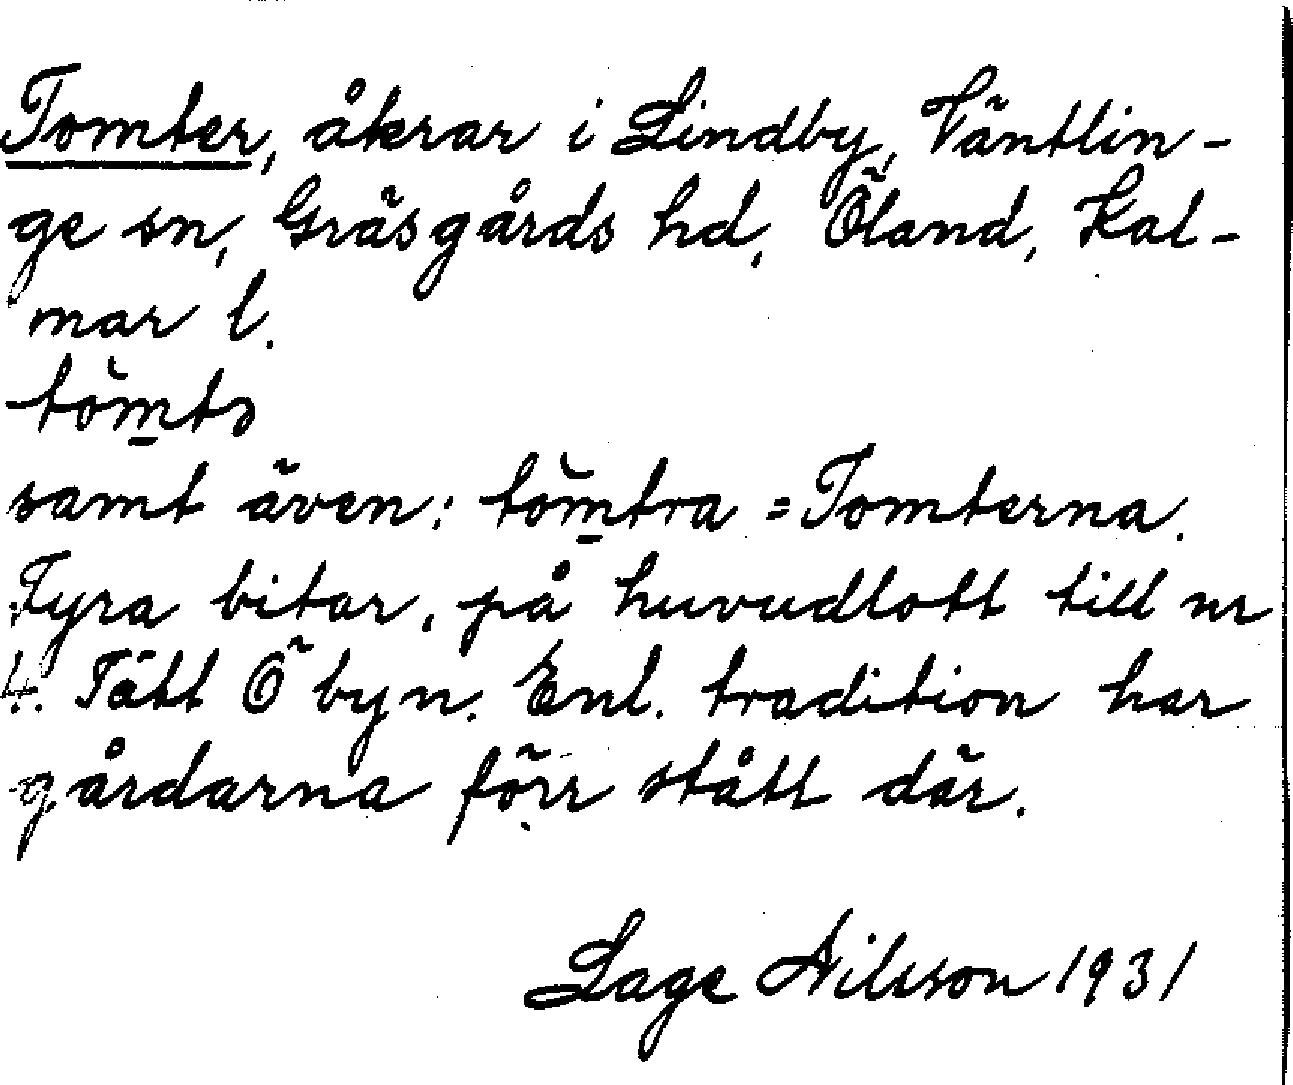 Tomter, åkrar i Lindby, Väntlin-
ge sn, Gräsgårds hd, Öland, Kal-
mar l.
tòm̲tə
samt även: tòm̲tra = Tomterna.
Fyra bitar, på huvudlott till nr
4. Tätt Ö byn. Enl. tradition har
gårdarna förr stått där.
Lage Nilsson 1931